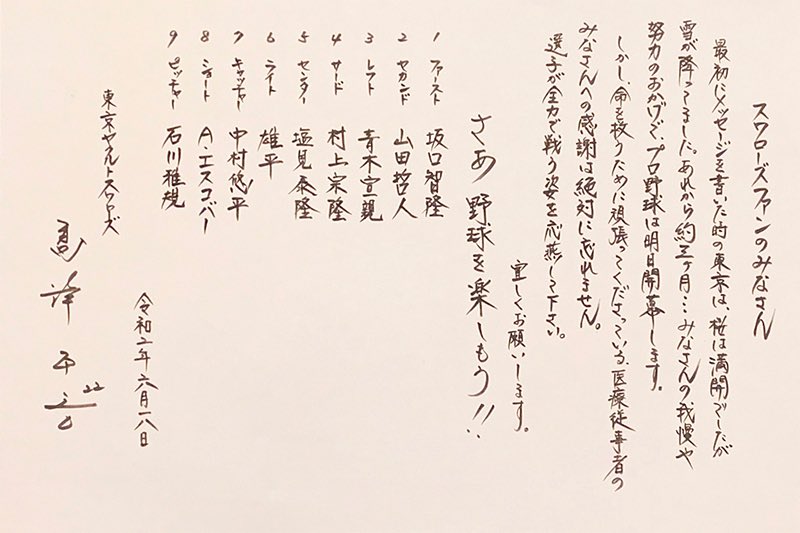 スワローズファンのみなさん
最初にメッセージを書いた時の東京は、桜は満開でしたが
雪が降ってました。あれから約三ヶ月…みなさんの我慢や
努力のおかげで、プロ野球は明日開幕します。
しかし、命を救うために頑張ってくださっている、医療従事者の
みなさんへの感謝は絶対に忘れません。
選手が全力で戦う姿を応燕して下さい。
宜しくお願いします。
さあ 野球を楽しもう!!
1 ファースト 坂口智隆
2 セカンド 山田哲人
3 レフト 青木宣親
4 サード 村上宗隆
5 センター 塩見泰隆
6 ライト 雄平
7 キャッチャー 中村悠平
8 ショート A・エスコバー
9 ピッチャー 石川雅規
令和二年六月一八日
東京ヤクルトスワローズ
高津 22